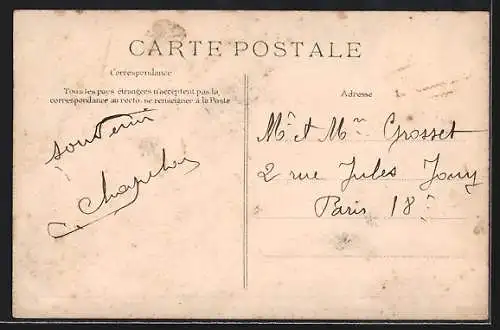 CARTE POSTALE
Correspondance
Tous les pays étrangers n'acceptent pas la
correspondance au recto, se renseigner à la Poste
Souvenir
Adresse
Mr et Mme Grosset
2 rue Jules Jouy
Paris 18e